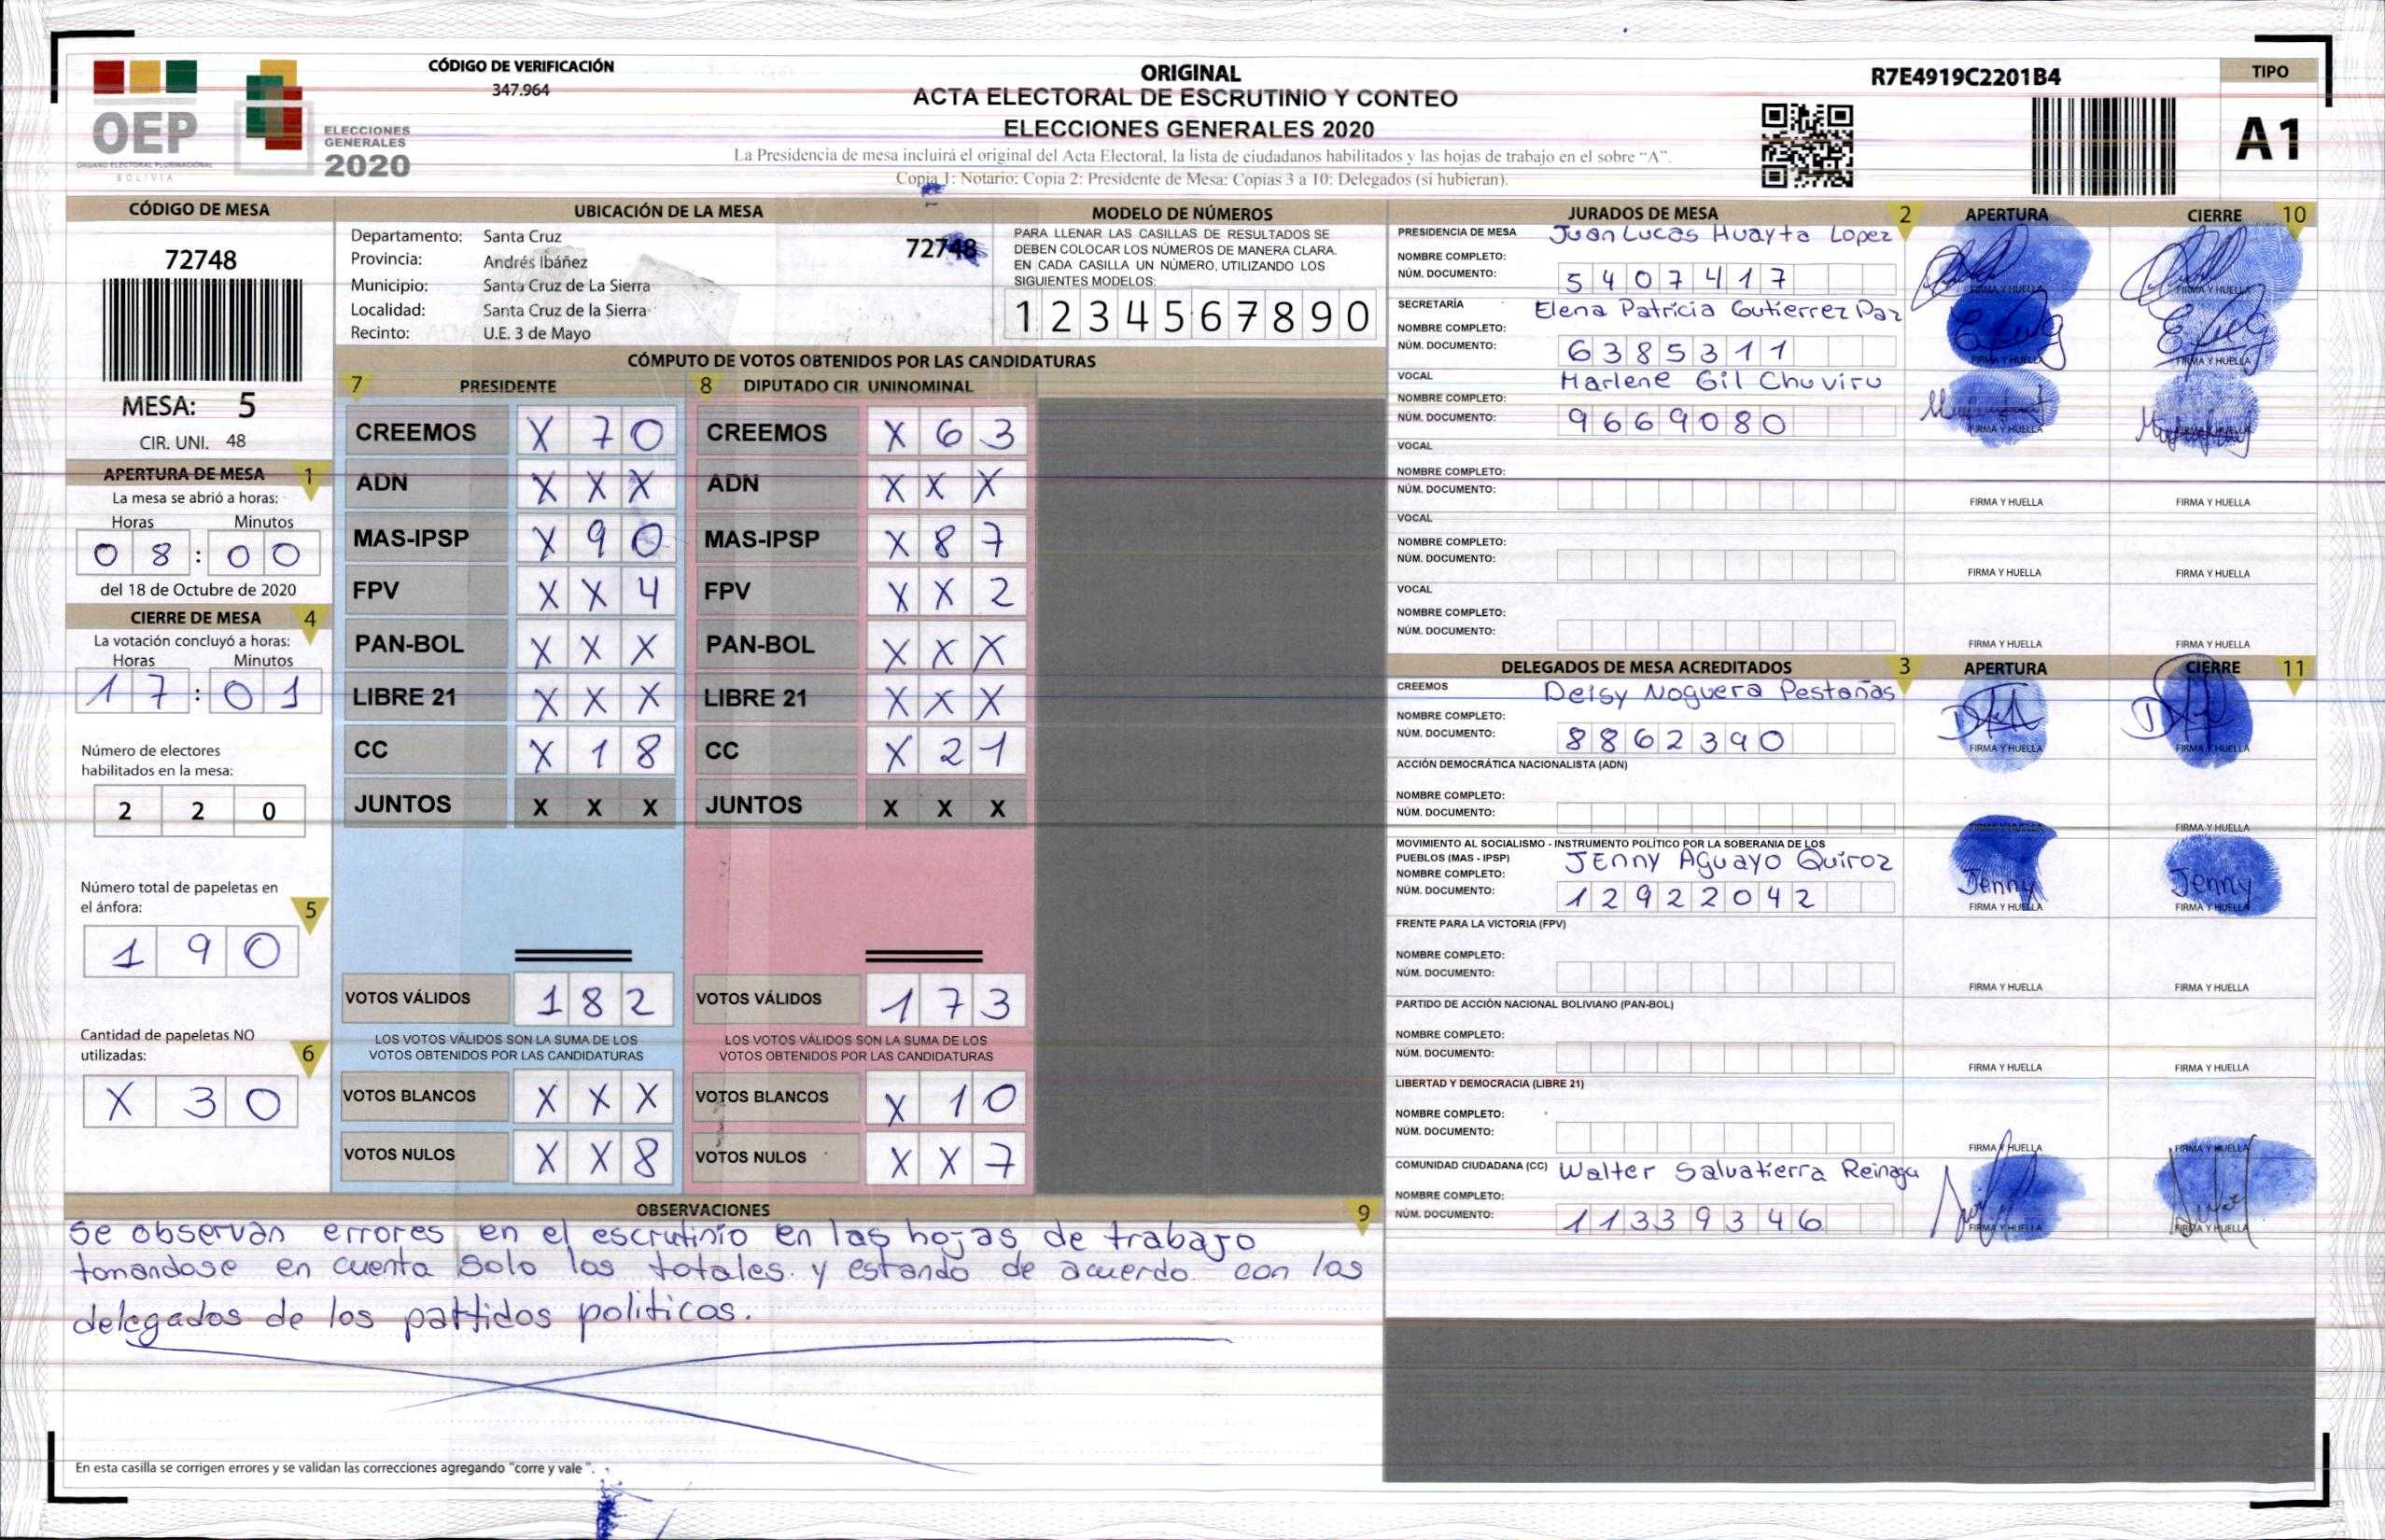 CÓDIGO DE VERIFICACIÓN
347.964
OEP
ÓRGANO ELECTORAL PLURINACIONAL
BOLIVIA
ELECCIONES
GENERALES
2020
ORIGINAL
ACTA ELECTORAL DE ESCRUTINIO Y CONTEO
ELECCIONES GENERALES 2020
La Presidencia de mesa incluirá el original del Acta Electoral, la lista de ciudadanos habilitados y las hojas de trabajo en el sobre "A".
Copia 1: Notario: Copia 2: Presidente de Mesa: Copias 3 a 10: Delegados (si hubieran).
R7E4919C2201B4
TIPO
A1
CÓDIGO DE MESA
72748
MESA: 5
CIR. UNI. 48
UBICACIÓN DE LA MESA
Departamento: Santa Cruz
Provincia: Andrés Ibáñez
Municipio: Santa Cruz de La Sierra
Localidad: Santa Cruz de la Sierra
Recinto: U.E. 3 de Mayo
72748
MODELO DE NÚMEROS
PARA LLENAR LAS CASILLAS DE RESULTADOS SE
DEBEN COLOCAR LOS NÚMEROS DE MANERA CLARA.
EN CADA CASILLA UN NÚMERO, UTILIZANDO LOS
SIGUIENTES MODELOS:
1 2 3 4 5 6 7 8 9 0
APERTURA DE MESA 1
La mesa se abrió a horas:
Horas Minutos
0 8 : 0 0
del 18 de Octubre de 2020
CIERRE DE MESA 4
La votación concluyó a horas:
Horas Minutos
1 7 : 0 1
Número de electores
habilitados en la mesa:
2 2 0
Número total de papeletas en
el ánfora: 5
1 9 0
Cantidad de papeletas NO
utilizadas: 6
X 3 0
CÓMPUTO DE VOTOS OBTENIDOS POR LAS CANDIDATURAS
7 PRESIDENTE
CREEMOS X 7 0
ADN X X X
MAS-IPSP X 9 0
FPV X X 4
PAN-BOL X X X
LIBRE 21 X X X
CC X 1 8
JUNTOS X X X
VOTOS VÁLIDOS 1 8 2
LOS VOTOS VÁLIDOS SON LA SUMA DE LOS
VOTOS OBTENIDOS POR LAS CANDIDATURAS
VOTOS BLANCOS X X X
VOTOS NULOS X X 8
8 DIPUTADO CIR. UNINOMINAL
CREEMOS X 6 3
ADN X X X
MAS-IPSP X 8 7
FPV X X 2
PAN-BOL X X X
LIBRE 21 X X X
CC X 2 1
JUNTOS X X X
VOTOS VÁLIDOS 1 7 3
LOS VOTOS VÁLIDOS SON LA SUMA DE LOS
VOTOS OBTENIDOS POR LAS CANDIDATURAS
VOTOS BLANCOS X 1 0
VOTOS NULOS X X 7
OBSERVACIONES 9
se observan errores en el escrutinio en las hojas de trabajo
tomandose en cuenta solo los totales. y estando de acuerdo con los
delegados de los partidos politicos.
En esta casilla se corrigen errores y se validan las correcciones agregando "corre y vale ".
JURADOS DE MESA 2 APERTURA CIERRE 10
PRESIDENCIA DE MESA Juan Lucas Huayta Lopez
NOMBRE COMPLETO:
NÚM. DOCUMENTO: 5 4 0 7 4 1 7
FIRMA Y HUELLA FIRMA Y HUELLA
SECRETARÍA Elena Patricia Gutierrez Paz
NOMBRE COMPLETO:
NÚM. DOCUMENTO: 6 3 8 5 3 1 1
FIRMA Y HUELLA FIRMA Y HUELLA
VOCAL Marlene Gil Chuviru
NOMBRE COMPLETO:
NÚM. DOCUMENTO: 9 6 6 9 0 8 0
FIRMA Y HUELLA FIRMA Y HUELLA
VOCAL
NOMBRE COMPLETO:
NÚM. DOCUMENTO:
FIRMA Y HUELLA FIRMA Y HUELLA
VOCAL
NOMBRE COMPLETO:
NÚM. DOCUMENTO:
FIRMA Y HUELLA FIRMA Y HUELLA
VOCAL
NOMBRE COMPLETO:
NÚM. DOCUMENTO:
FIRMA Y HUELLA FIRMA Y HUELLA
DELEGADOS DE MESA ACREDITADOS 3 APERTURA CIERRE 11
CREEMOS Deisy Noguera Pestañas
NOMBRE COMPLETO:
NÚM. DOCUMENTO: 8 8 6 2 3 9 0
FIRMA Y HUELLA FIRMA Y HUELLA
ACCIÓN DEMOCRÁTICA NACIONALISTA (ADN)
NOMBRE COMPLETO:
NÚM. DOCUMENTO:
FIRMA Y HUELLA FIRMA Y HUELLA
MOVIMIENTO AL SOCIALISMO - INSTRUMENTO POLÍTICO POR LA SOBERANIA DE LOS
PUEBLOS (MAS - IPSP) JEnny Aguayo Quiroz
NOMBRE COMPLETO:
NÚM. DOCUMENTO: 1 2 9 2 2 0 4 2
Jenny Jenny
FIRMA Y HUELLA FIRMA Y HUELLA
FRENTE PARA LA VICTORIA (FPV)
NOMBRE COMPLETO:
NÚM. DOCUMENTO:
FIRMA Y HUELLA FIRMA Y HUELLA
PARTIDO DE ACCIÓN NACIONAL BOLIVIANO (PAN-BOL)
NOMBRE COMPLETO:
NÚM. DOCUMENTO:
FIRMA Y HUELLA FIRMA Y HUELLA
LIBERTAD Y DEMOCRACIA (LIBRE 21)
NOMBRE COMPLETO:
NÚM. DOCUMENTO:
FIRMA Y HUELLA FIRMA Y HUELLA
COMUNIDAD CIUDADANA (CC) Walter Salvatierra Reinaga
NOMBRE COMPLETO:
NÚM. DOCUMENTO: 1 1 3 3 9 3 4 6
FIRMA Y HUELLA FIRMA Y HUELLA